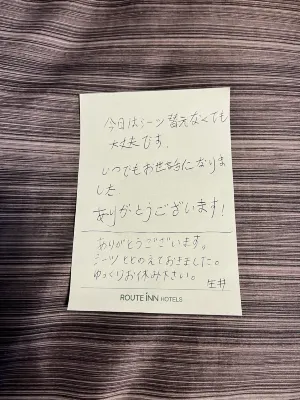 今日はシーン替えなくても
大丈夫です。
いつでもお世話になりま
した
ありがとうございます!
ありがとうございます。
シーツととのえておきました。
ゆっくりお休み下さい。
生井
ROUTE INN HOTELS